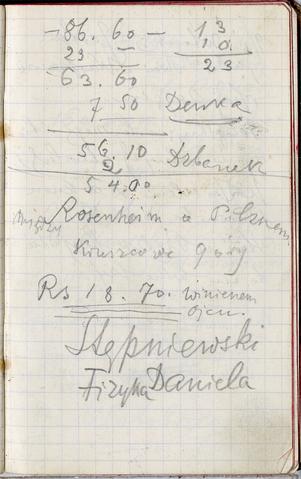 86.60 — 13
23 — 10.
63.60 23
7 50 Denka
56.10 Dzbanek
2
54.00
Między Rosenheim a Pilznem
góry
Rs 18.70. winienem
ojcu.
Stępniewski
Fizyka Daniela